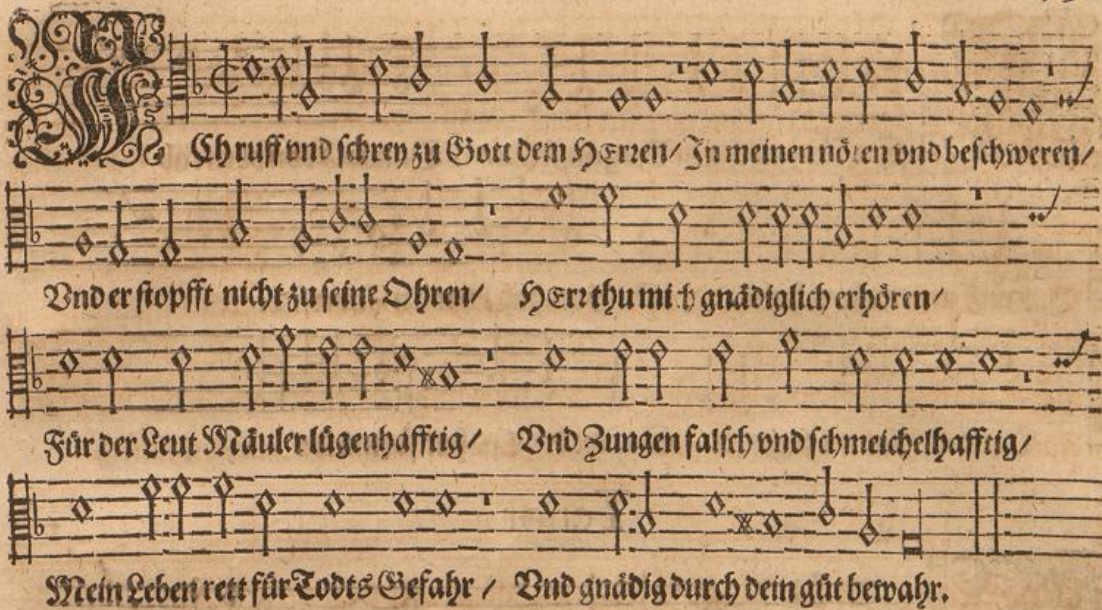 ICh ruff vnd schrey zu Gott dem HErren/ In meinen nöten vnd beschweren/
Vnd er stopfft nicht zu seine Ohren/ HErr thu mich gnädiglich erhören/
Für der Leut Mäuler lügenhafftig/ Vnd Zungen falsch vnd schmeichelhafftig/
Mein Leben rett für Todts Gefahr/ Vnd gnädig durch dein güt bewahr.